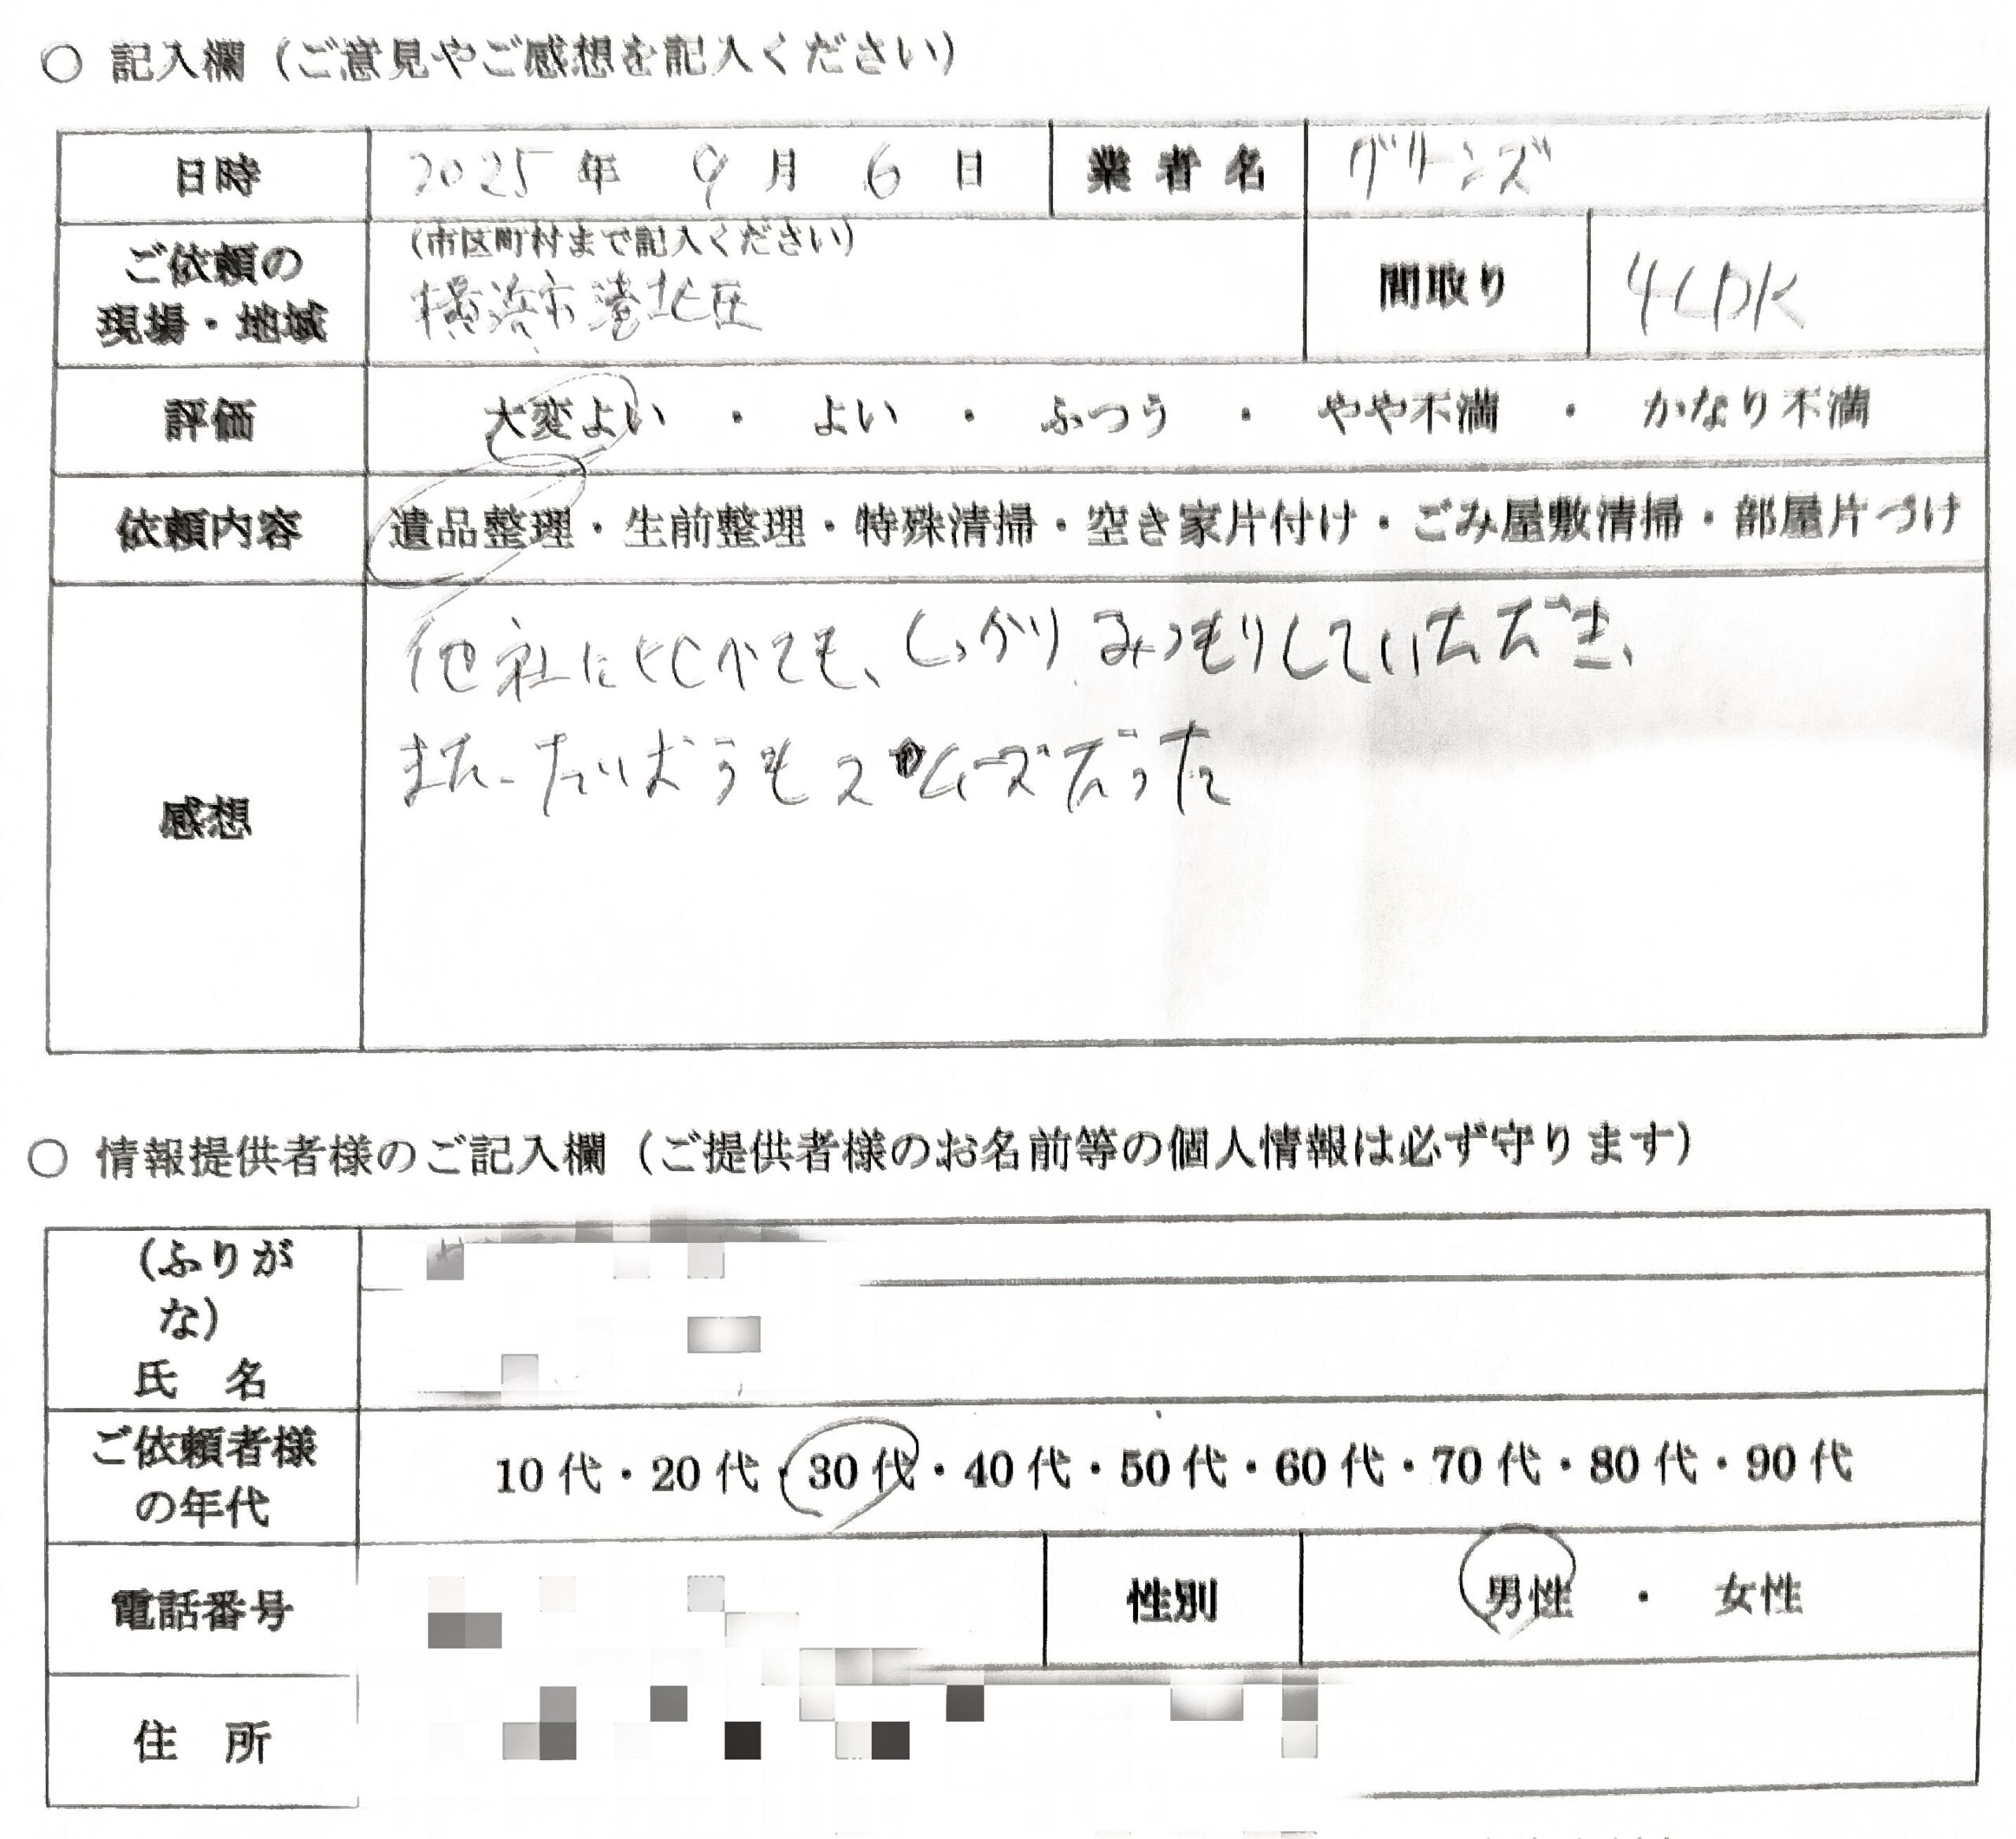 ○ 記入欄（ご意見やご感想を記入ください）
日時 2025 年 9 月 6 日 業者名 グリーンズ
ご依頼の現場・地域 （市区町村まで記入ください）
横浜市港北区 間取り 4LDK
評価 大変よい ・ よい ・ ふつう ・ やや不満 ・ かなり不満
依頼内容 遺品整理・生前整理・特殊清掃・空き家片付け・ごみ屋敷清掃・部屋片づけ
感想
他社に比べても、しっかりみつもりしていただき、
また、たいおうもスムーズだった
○ 情報提供者様のご記入欄（ご提供者様のお名前等の個人情報は必ず守ります）
（ふりが
な）
氏 名
ご依頼者様
の年代 10代・20代・30代・40代・50代・60代・70代・80代・90代
電話番号 性別 男性 ・ 女性
住 所